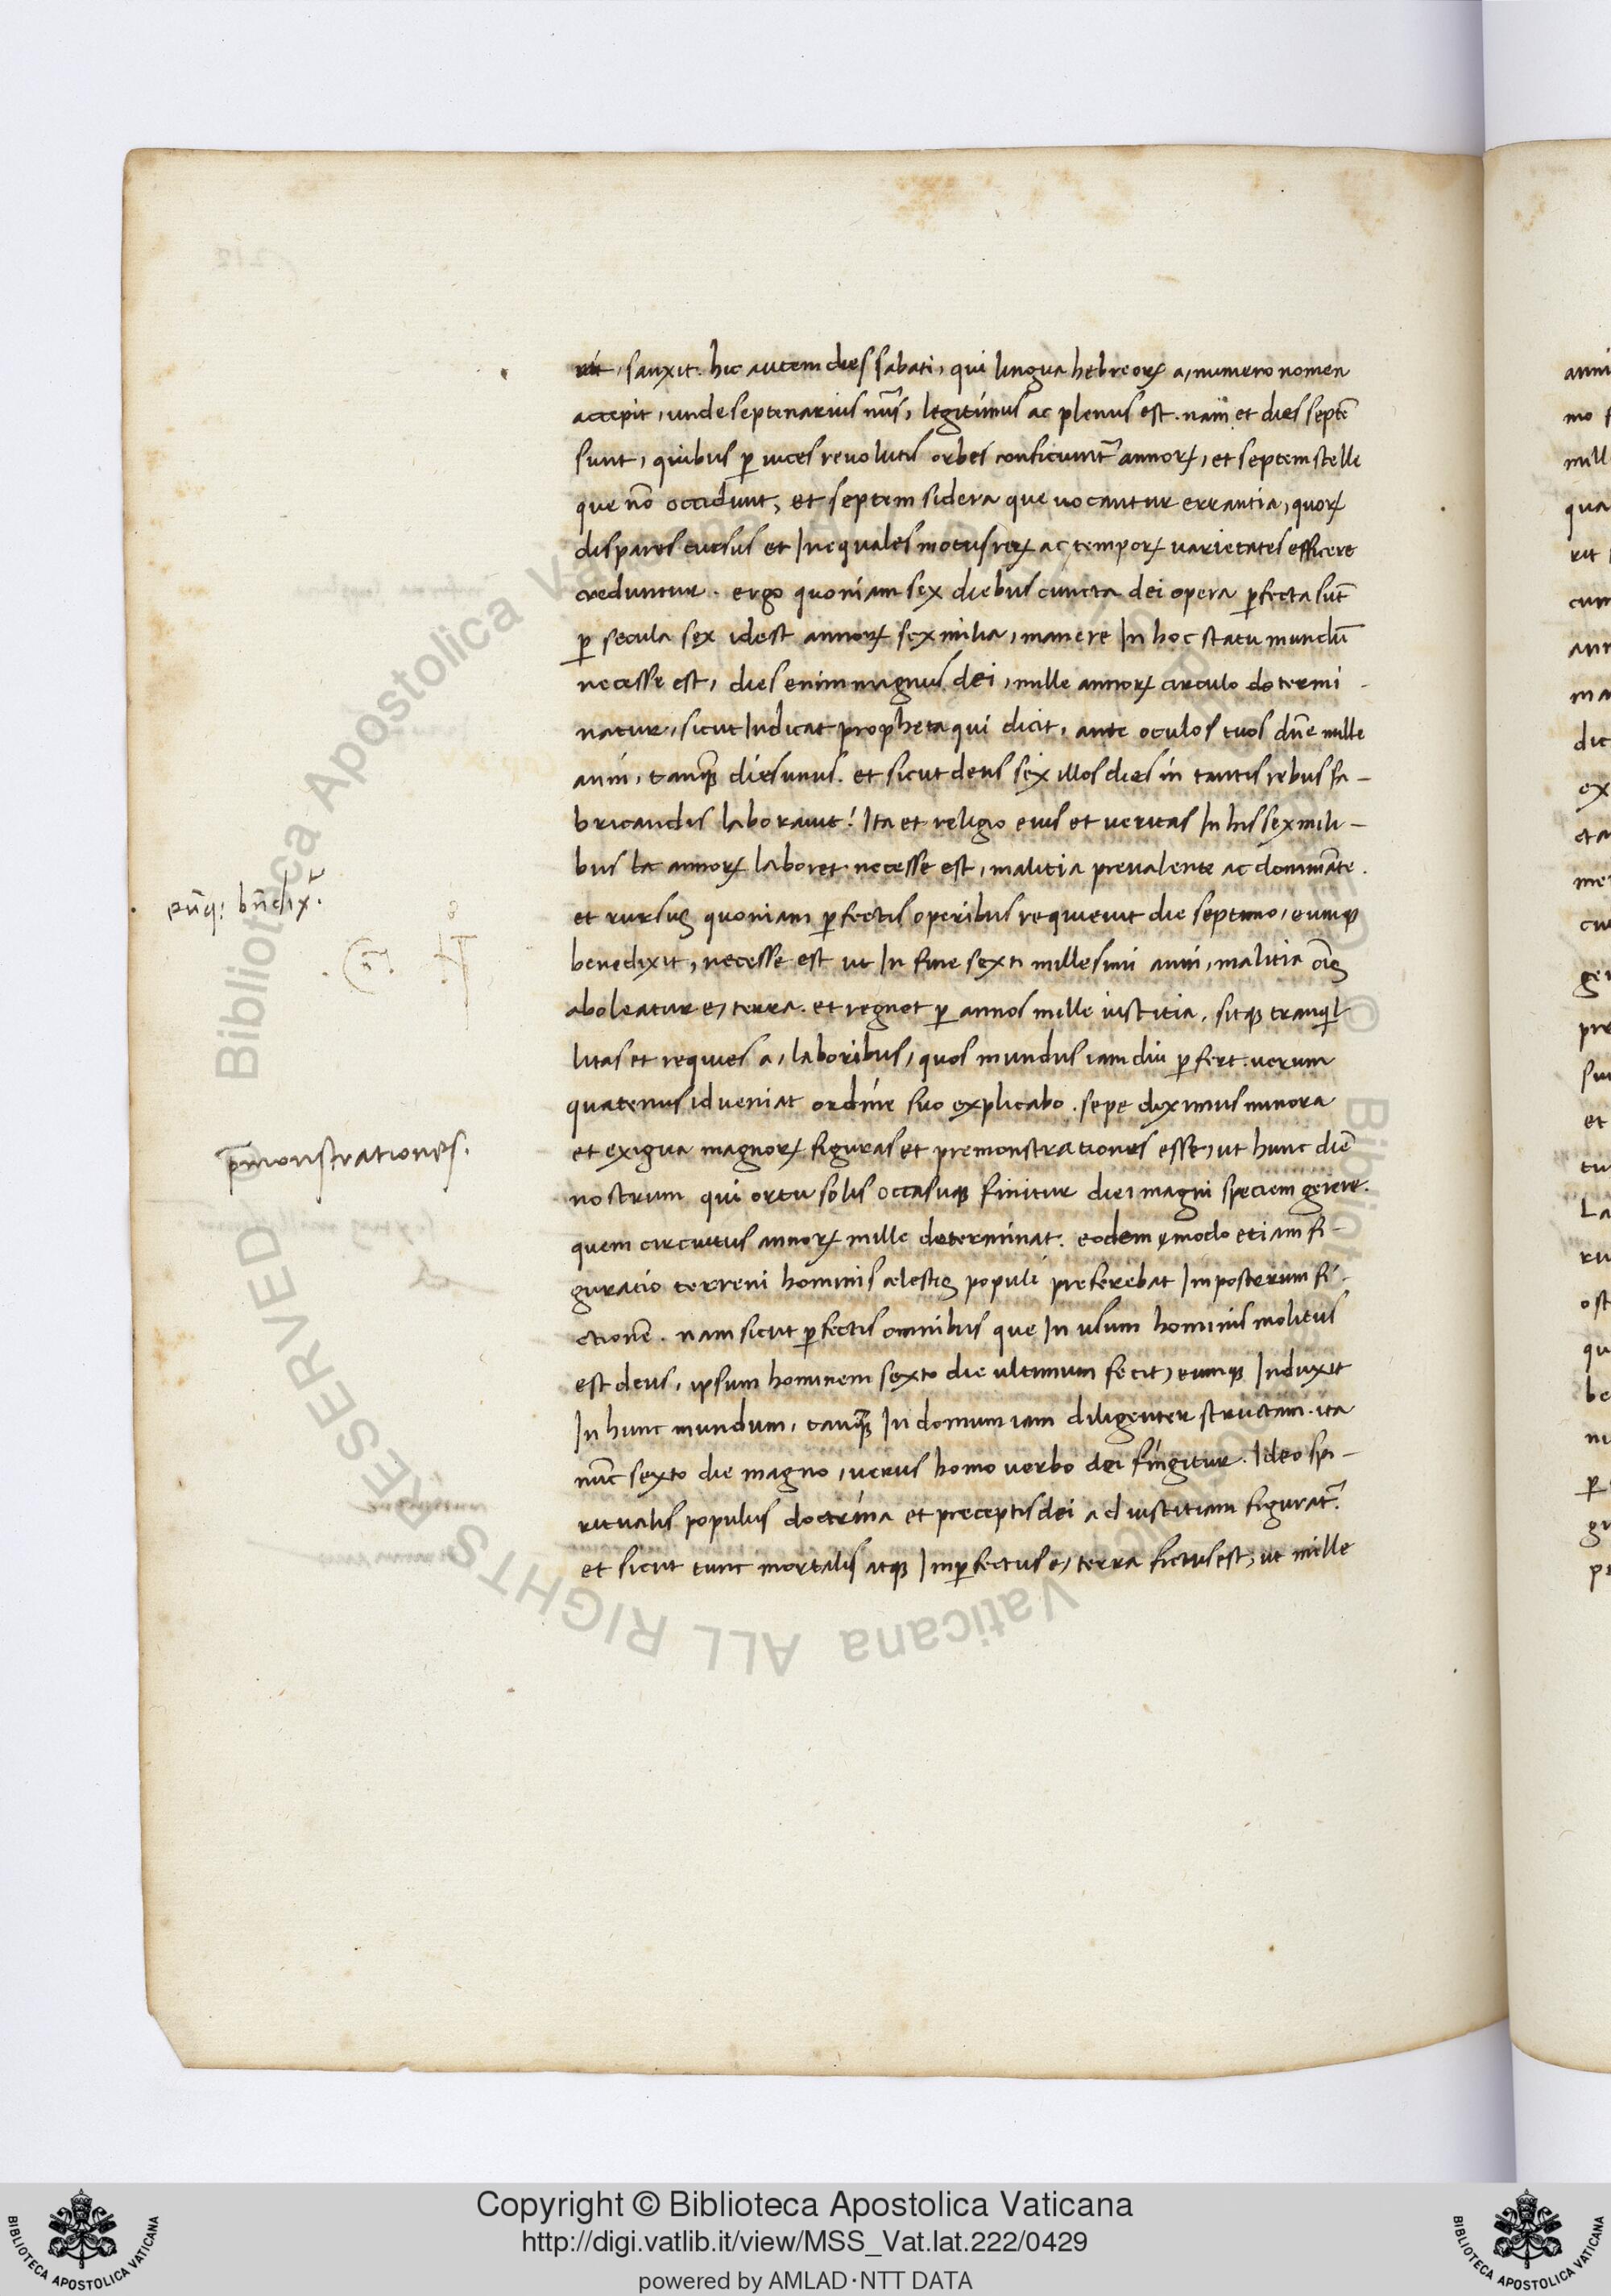 rit, sanxit. hic autem dies sabati, qui lingua hebreoꝝ a, numero nomen
accepit, unde septenarius nu͂s, legitimus ac plenus est. nam et dies septe͂
sunt, quibus ꝑ uices reuolutis orbes conficiunt᷑ annoꝝ, et septem stelle
que no͂ occidunt, et septem sidera que uocantur errantia, quoꝝ
dispares cursus et Inequales motus reꝝ ac tempoꝝ uarietates efficere
creduntur. ergo quoniam sex diebus cuncta dei opera ꝑfecta su͂t
ꝑ secula sex idest annoꝝ sex milia, manere In hoc statu mundu͂
necesse est, dies enim magnus dei, mille annoꝝ circulo determi
natur, sicut Indicat propheta qui dicit, ante oculos tuos dn͂e mille
anni, tanqꝫ dies unus. et sicut deus sex illos dies in tantis rebus fa-
bricandis laborauit! Ita et religio eius et ueritas In his sex mili-
bus annoꝝ laboret necesse est, malitia preualente ac domina͂te.
et rursus quoniam ꝑfectis operibus requieuit die septimo, eumqꝫ
benedixit, necesse est ut In fine sexti millesimi anni, malitia o͂is
aboleatur e, terra. et regnet ꝑ annos mille iustitia, sitqꝫ tranqil
litas et requies a, laboribus, quos mundus iam diu ꝑfert. uerum
quatenus id ueniat ordine suo explicabo. sepe diximus minora
et exigua magnoꝝ figuras et premonstrationes esse, ut hunc die͂
nostrum qui ortu solis occasuqꝫ finitur diei magni speciem gerere.
quem circuitus annoꝝ mille determinat. eodem modo etiam fi-
guratio terreni hominis celestis populi preferebat Imposterum fi-
ctione͂. nam sicut ꝑfectis omnibus que In usum hominis molitus
est deus, ipsum hominem sexto die ultimum fecit, eumqꝫ Induxit
In hunc mundum, tanqꝫ In domum iam diligenter structam. ita
nu͂c sexto die magno, uerus homo uerbo dei fingitur. Ideo spi-
ritualis populus doctrina et preceptis dei ad iustitiam figurat᷑.
et sicut tunc mortalis atqꝫ Imꝑfectus e, terra fictus est, ut mille
eu͂q: bn͂dix͂.
p͂monstrationes.
Copyright © Biblioteca Apostolica Vaticana
http://digi.vatlib.it/view/MSS_Vat.lat.222/0429
powered by AMLAD·NTT DATA
BIBLIOTECA APOSTOLICA VATICANA
BIBLIOTECA APOSTOLICA VATICANA